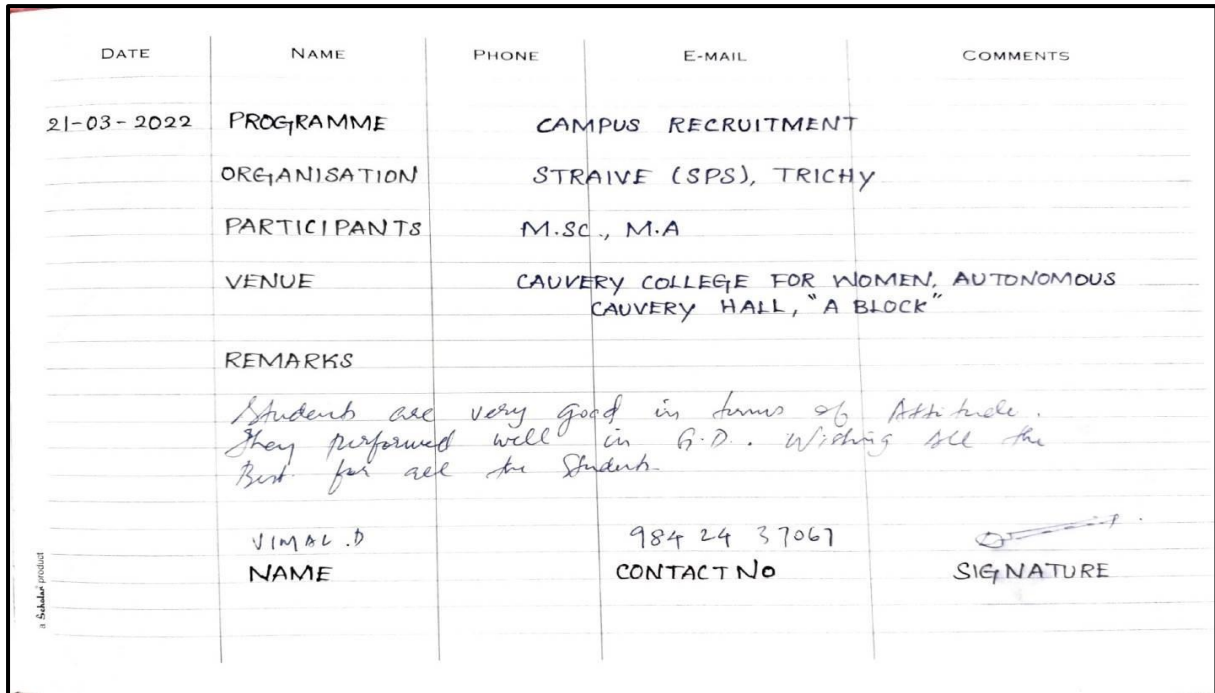 DATE NAME PHONE E-MAIL COMMENTS
21-03-2022 PROGRAMME CAMPUS RECRUITMENT
ORGANISATION STRAIVE (SPS), TRICHY
PARTICIPANTS M.SC., M.A
VENUE CAUVERY COLLEGE FOR WOMEN, AUTONOMOUS
CAUVERY HALL, "A BLOCK"
REMARKS
Students are very good in terms of Attitude.
They performed well in G.D. Wishing All the
Best for all the Students.
VIMAL.D 984 24 37067
NAME CONTACT NO SIGNATURE
a Scholar product